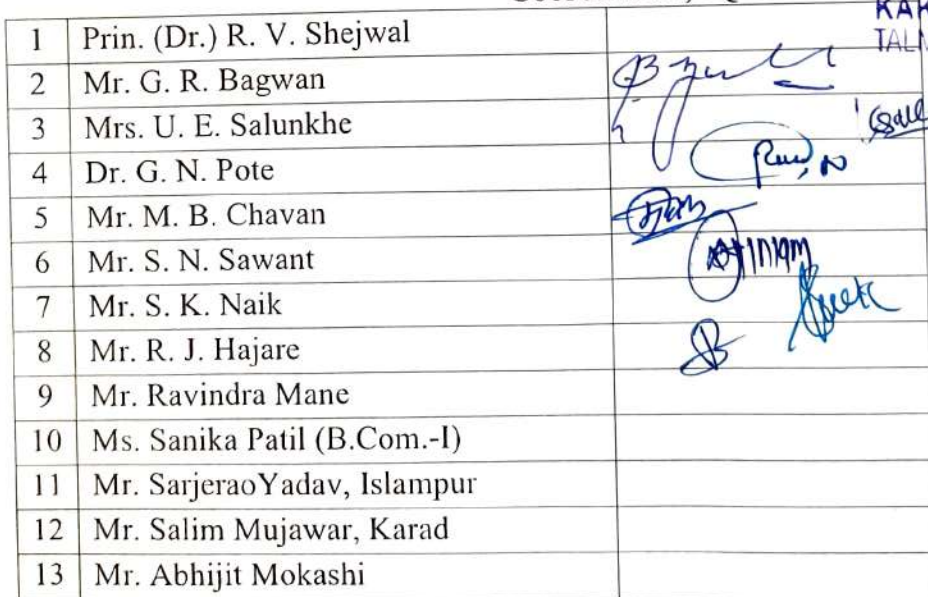 KAR
TALM
1 Prin. (Dr.) R. V. Shejwal
2 Mr. G. R. Bagwan
3 Mrs. U. E. Salunkhe
4 Dr. G. N. Pote
5 Mr. M. B. Chavan
6 Mr. S. N. Sawant
7 Mr. S. K. Naik
8 Mr. R. J. Hajare
9 Mr. Ravindra Mane
10 Ms. Sanika Patil (B.Com.-I)
11 Mr. SarjeraoYadav, Islampur
12 Mr. Salim Mujawar, Karad
13 Mr. Abhijit Mokashi